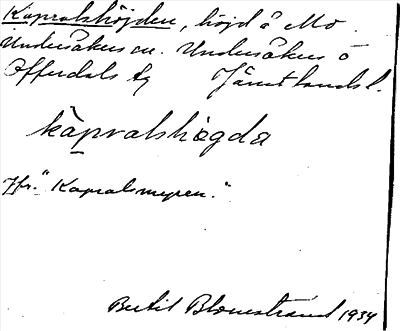 Kapralshöjden, höjd å Mo
Undersåkers sn. Undersåkers o
Offerdals tg Jämtlands l.
kȧpralshøgda
Jfr. "Kapralsmyren."
Bertil Blomstrand 1934